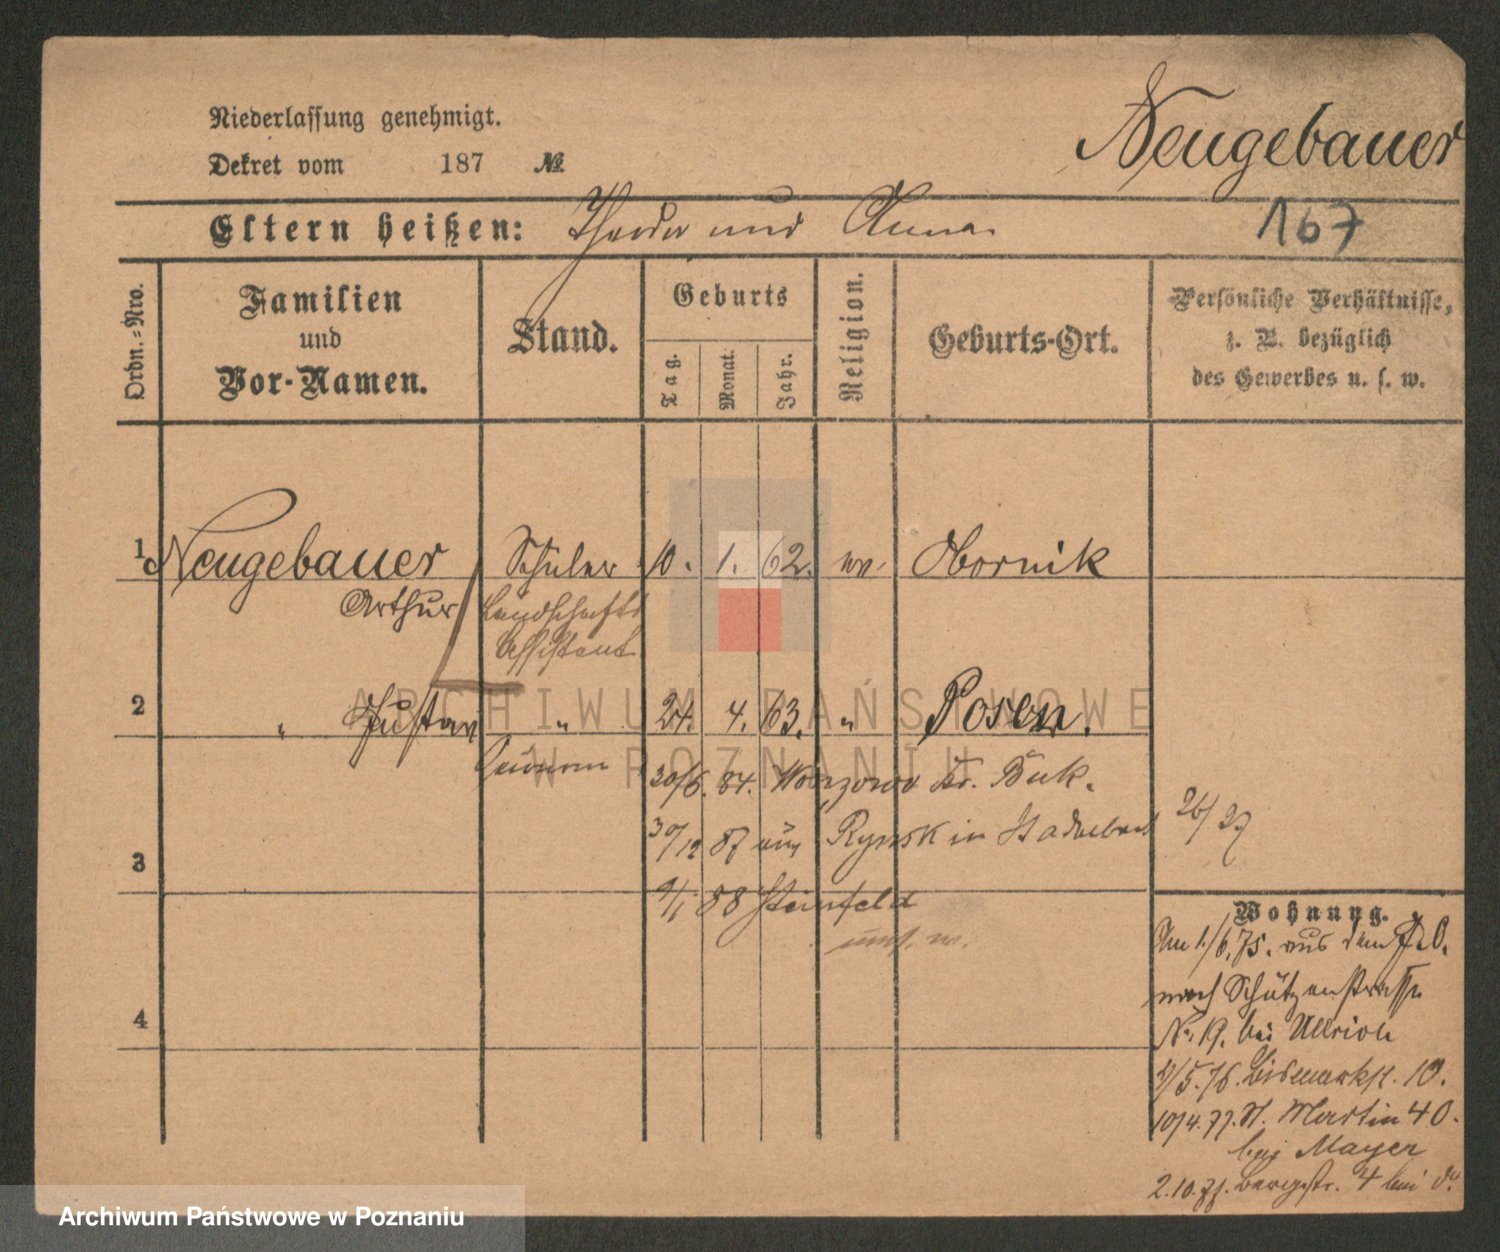 Niederlassung genehmigt.
Dekret vom 187 №
Neugebauer
Eltern heißen: und Anna
167
Ordn.-Nro.
Familien
und
Vor-Namen.
Stand.
Geburts
Tag.
Monat.
Jahr.
Religion.
Geburts-Ort.
Persönliche Verhältnisse,
z. B. bezüglich
des Gewerbes u. s. w.
1 Neugebauer Schüler 10. 1. 62. ev. Obornik
Arthur Landschafts
Assistent
2 " Gustav " 24. 4. 63. " Posen.
30/6. 84. Kr. Buk.
26/27
3
30/12 87 aus Rynsk in
9/1 88 Steinfeld
Wohnung.
Am 1/6.75. aus dem
nach Schützenstrasse
No. 19. bei Ullrich
5.76. Bismarckst. 10.
10/4.77. St. Martin 40.
bei Mayer
4
2.10. Bergstr. 4 bei
ARCHIWUM PAŃSTWOWE
W POZNANIU
Archiwum Państwowe w Poznaniu